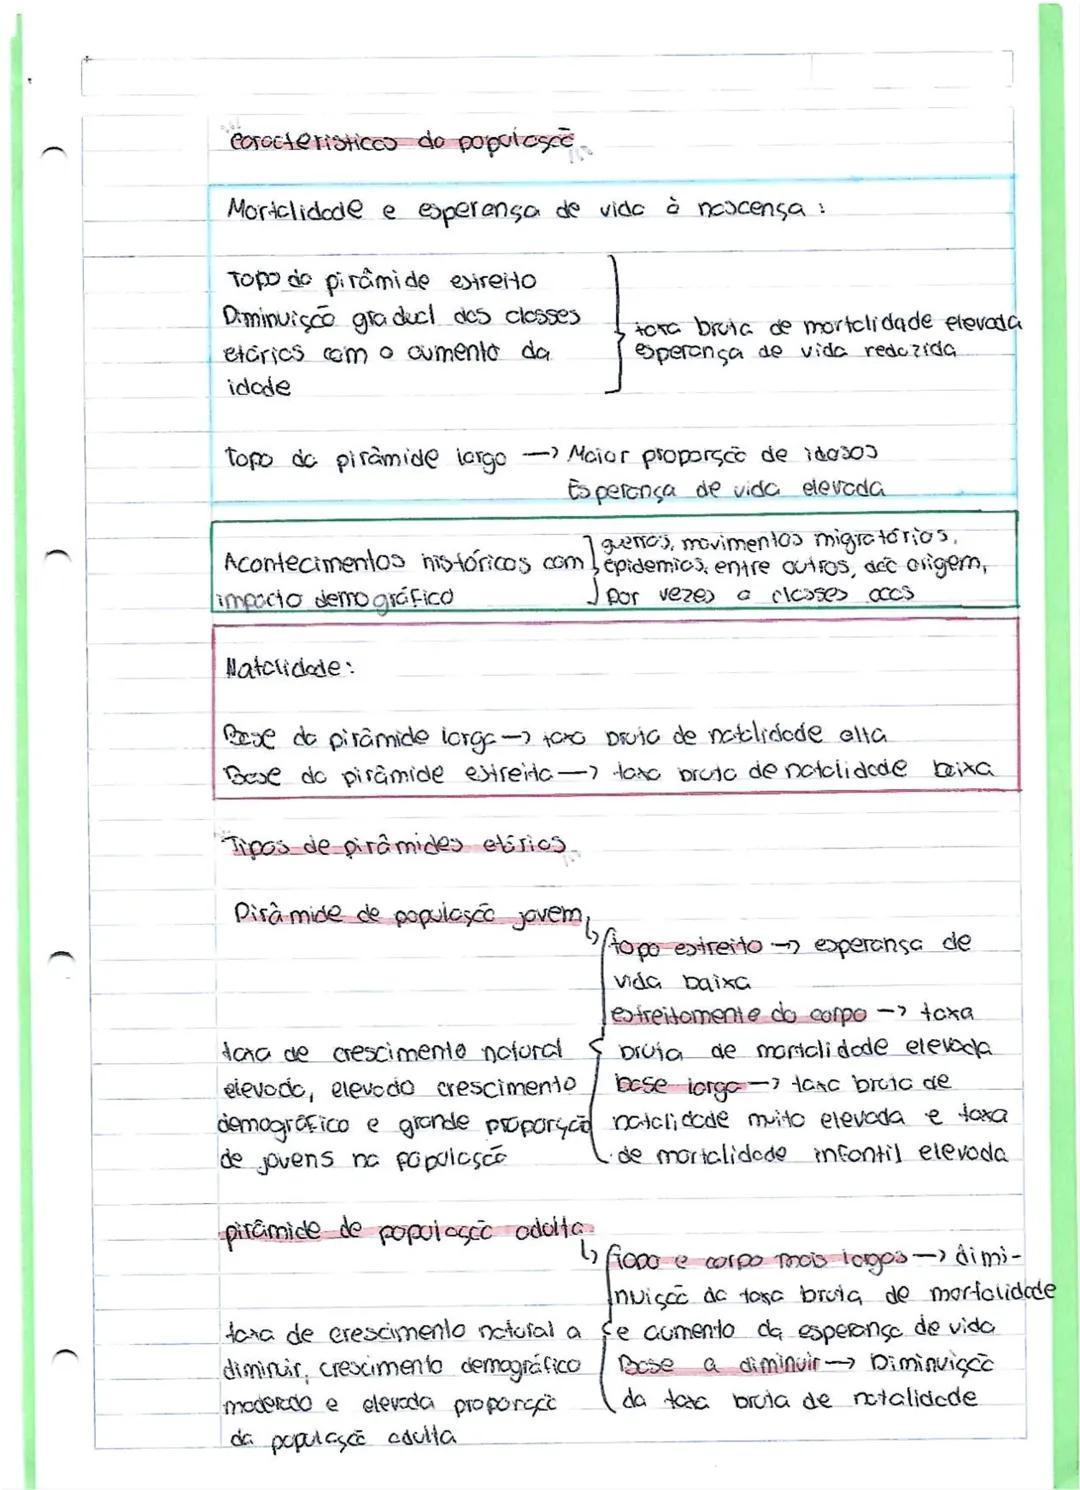 Caracteristicas da população
Mortalidade e esperança de vida à nascença :
Topo da pirâmide estreito
Diminuição gradual das classes
etárias com o aumento da
idade
taxa bruta de mortalidade elevada
esperança de vida reduzida
topo da pirâmide largo → Maior proporsão de idosos
Esperança de vida elevada
Acontecimentos históricos com
impacto demográfico
guerras, movimentos migratórios,
epidemias, entre outros, dão origem,
por vezes a classes ocas
Natalidade:
Base da pirâmide larga → taxa bruta de natalidade alta
Base da pirâmide estreita → taxa bruta de natalidade baixa
Tipos de pirâmides etárias
Pirâmide de população jovem
topo estreito → esperança de
vida baixa
estreitamente do corpo → taxa
bruta de mortalidade elevada
base larga → taxa bruta de
natalidade muito elevada e taxa
de mortalidade infantil elevada
taxa de crescimento natural
elevada, elevado crescimento
demográfico e grande proporção
de jovens na população
pirâmide de população adulta
Topo e corpo mais largos → dimi-
nuição da taxa bruta de mortalidade
e aumento da esperança de vida
Base a diminuir → Diminuição
da taxa bruta de natalidade
taxa de crescimento natural a
diminuir, crescimento demográfico
moderado e elevada proporção
da população adulta